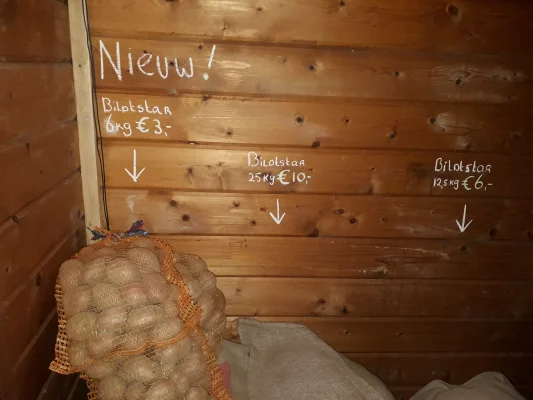 Nieuw!
Bilotstar
6kg €3,-
Bilotstar
25kg €10,-
Bilotstar
12,5kg €6,-